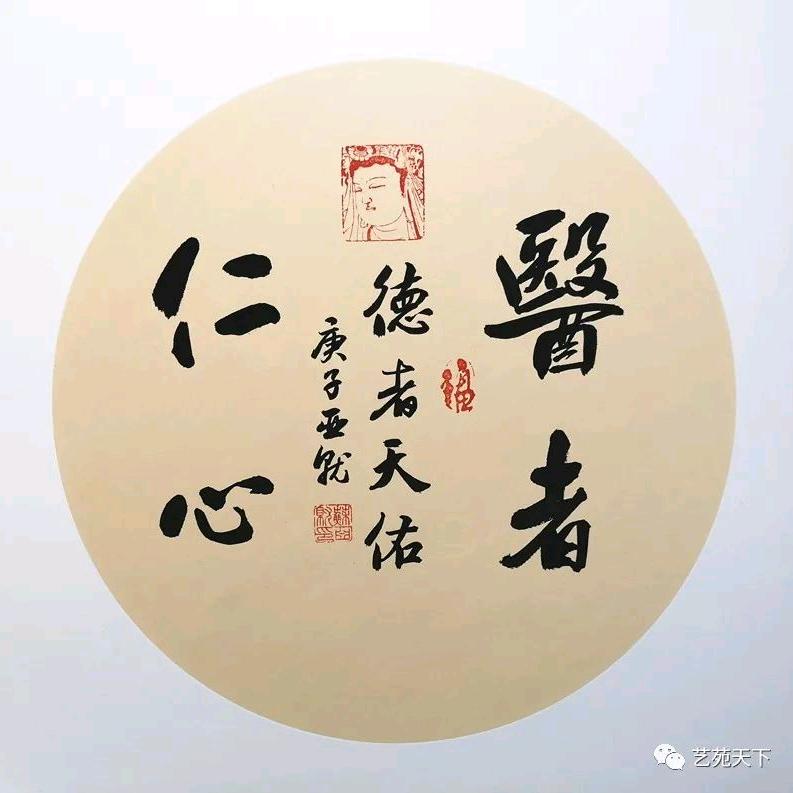 醫者
德者天佑
仁心
庚子亚就
福
艺苑天下